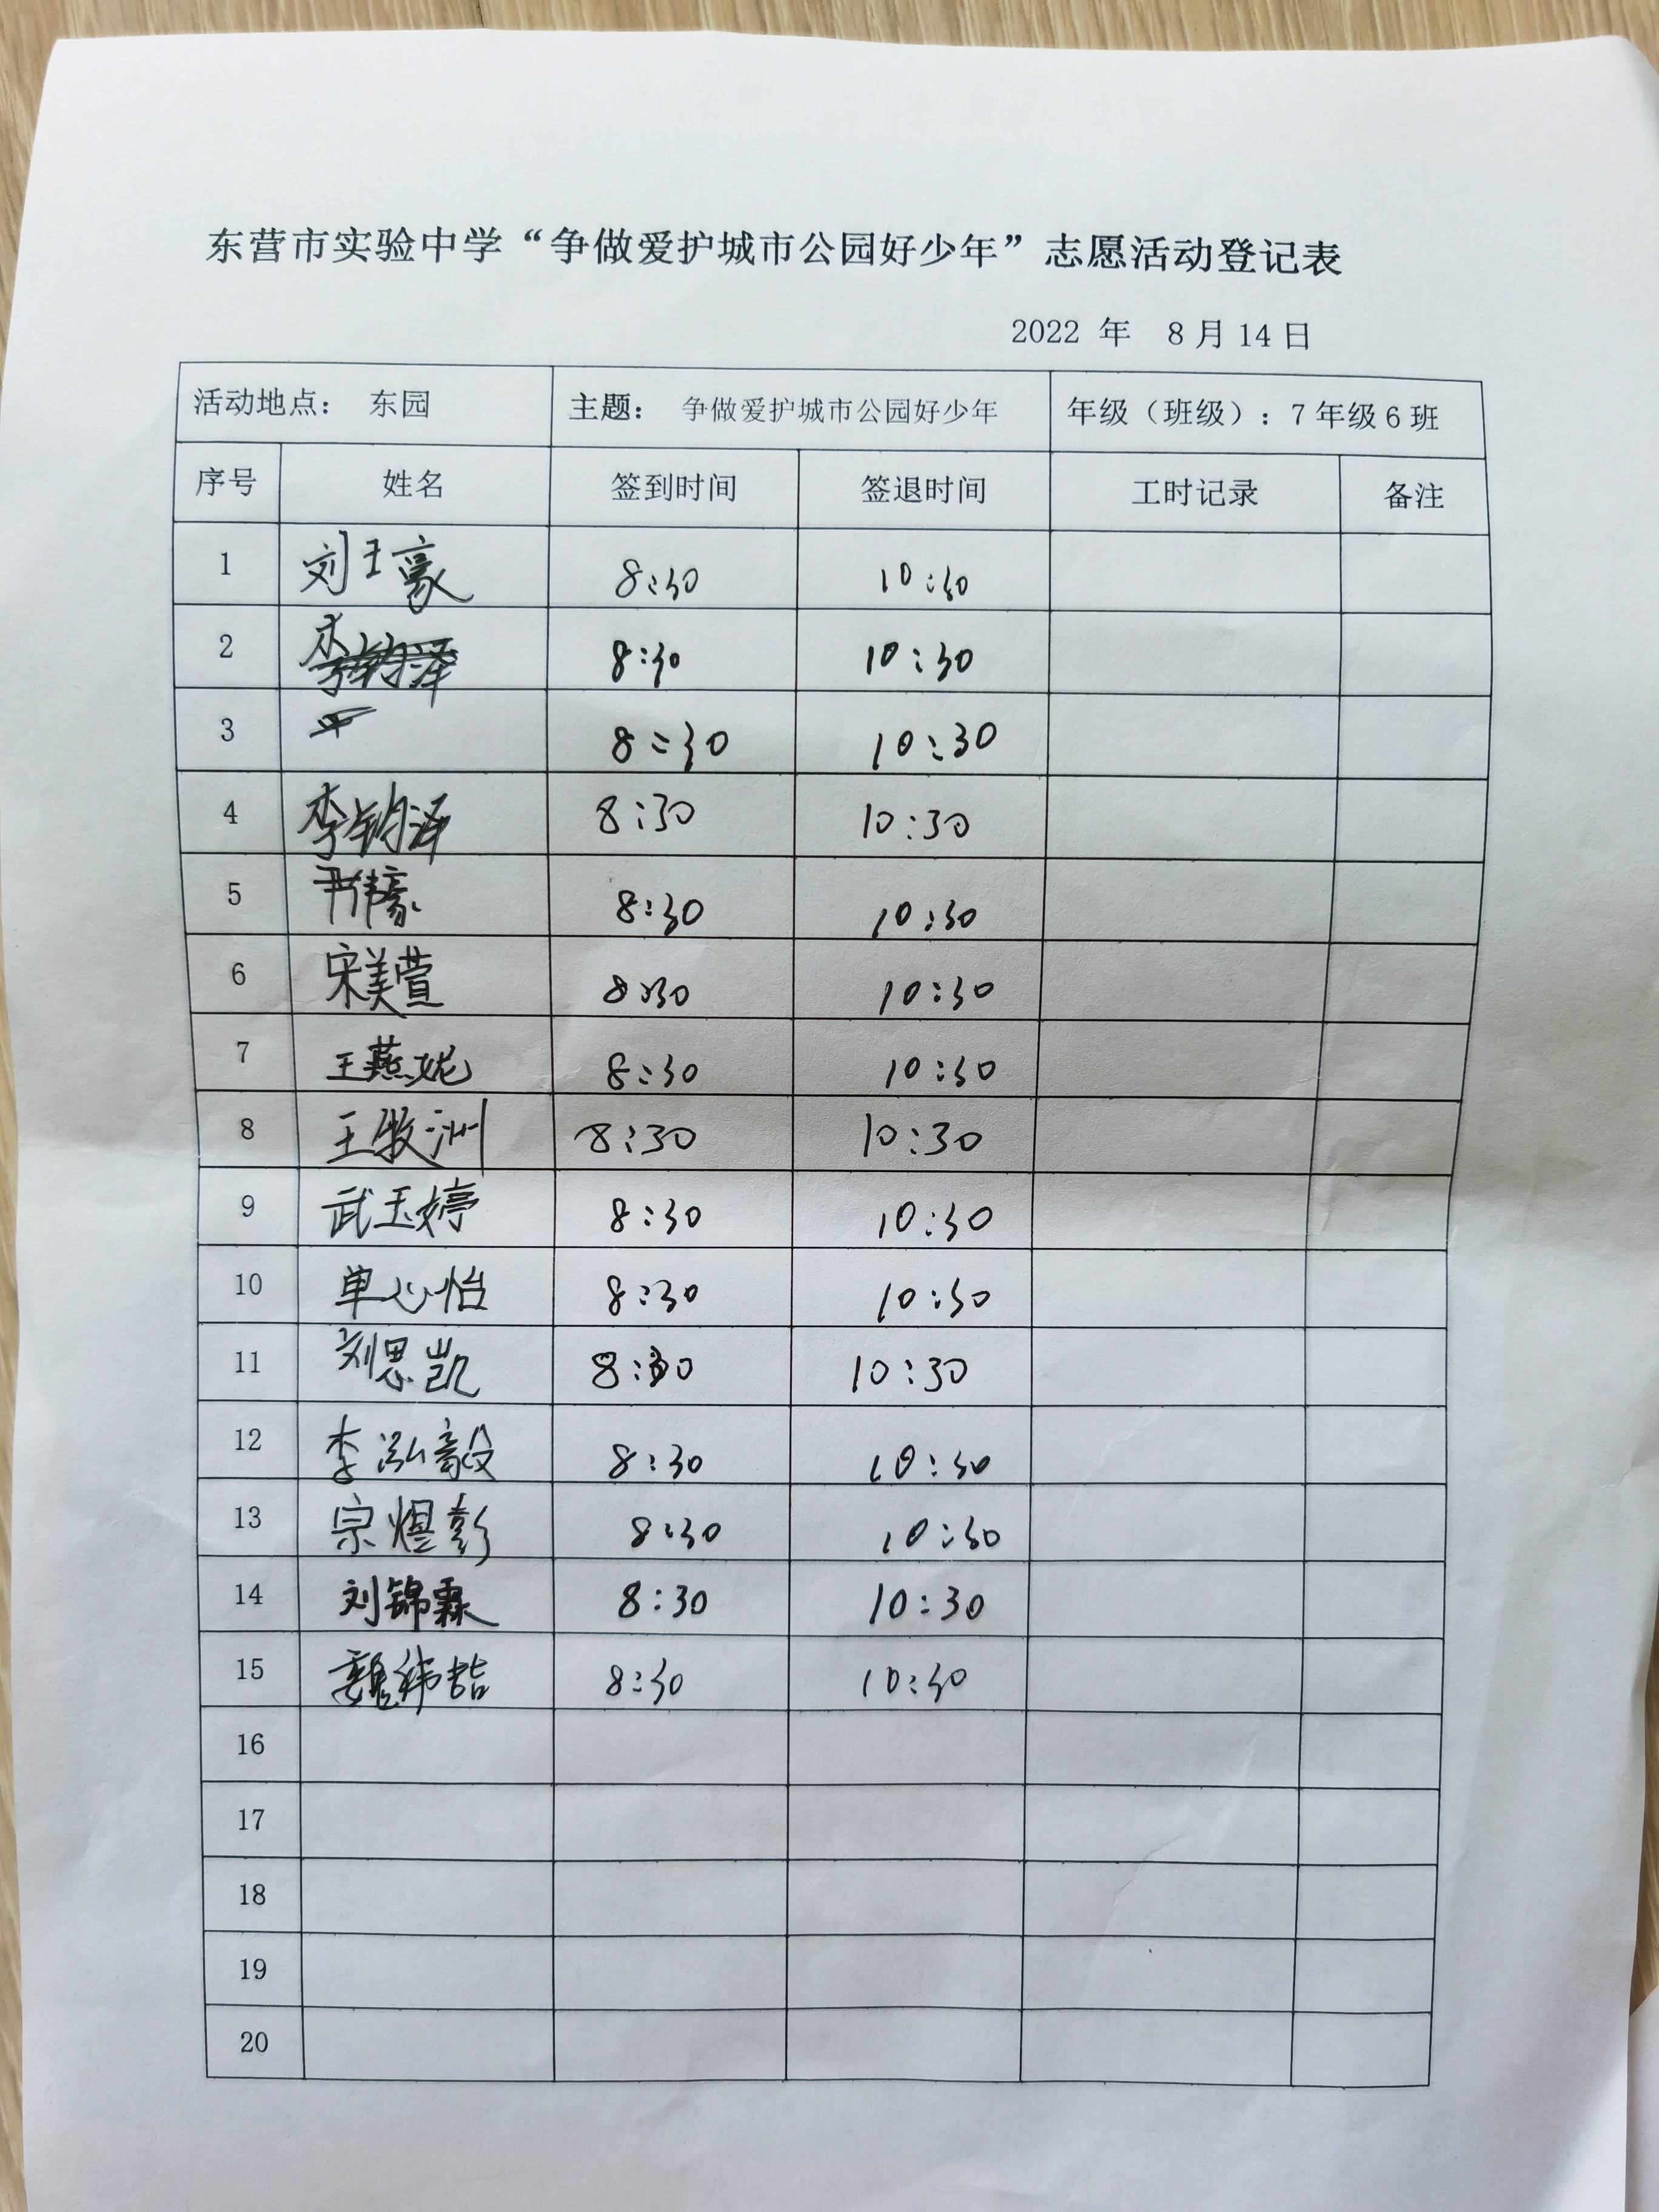 东营市实验中学“争做爱护城市公园好少年”志愿活动登记表
2022 年 8月14日
活动地点： 东园 主题： 争做爱护城市公园好少年 年级（班级）：7年级6班
序号 姓名 签到时间 签退时间 工时记录 备注
1 刘王豪 8:30 10:30
2 李钧泽 8:30 10:30
3 8:30 10:30
4 李钧泽 8:30 10:30
5 8:30 10:30
6 宋美萱 8:30 10:30
7 王燕妮 8:30 10:30
8 王牧洲 8:30 10:30
9 武玉婷 8:30 10:30
10 单心怡 8:30 10:30
11 刘思凯 8:30 10:30
12 李泓毅 8:30 10:30
13 宗煜彭 8:30 10:30
14 刘锦霖 8:30 10:30
15 魏祎喆 8:30 10:30
16
17
18
19
20